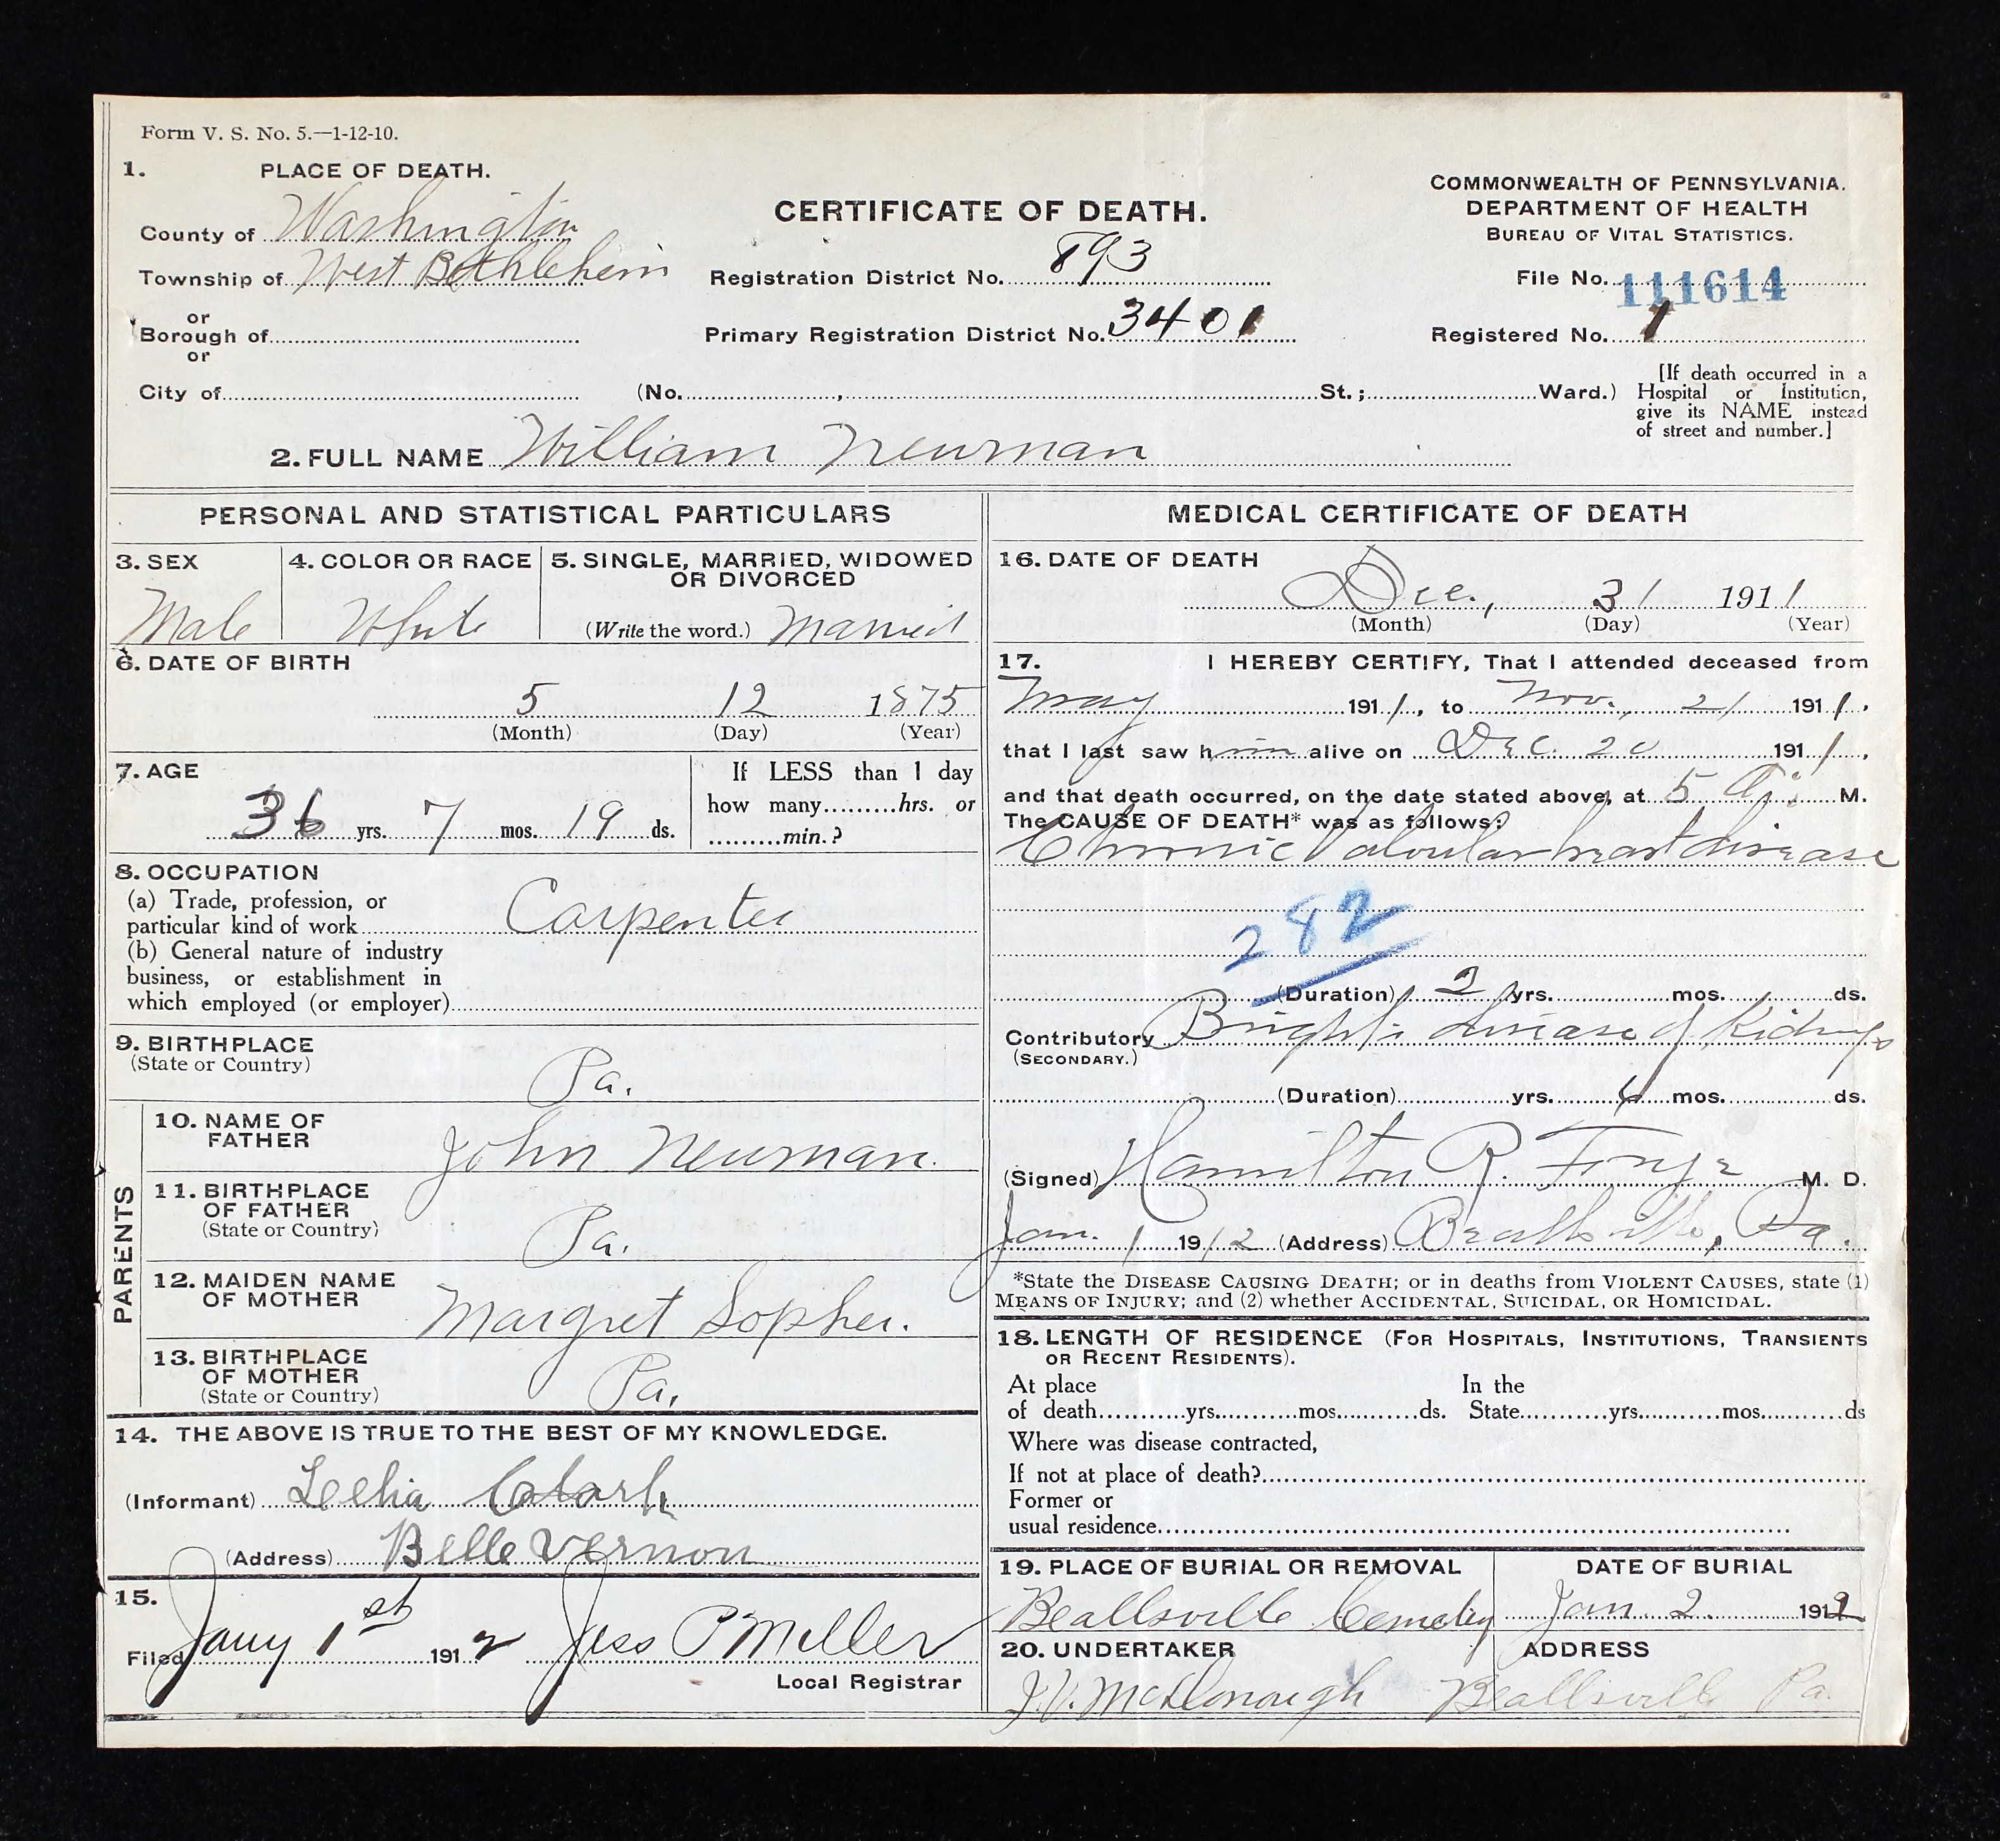 Form V. S. No. 5.—1-12-10.
1. PLACE OF DEATH.
County of Washington
Township of West Bethlehem
or
Borough of
or
City of
CERTIFICATE OF DEATH.
Registration District No. 893
Primary Registration District No. 3401
(No. , St.; Ward.)
COMMONWEALTH OF PENNSYLVANIA.
DEPARTMENT OF HEALTH
BUREAU OF VITAL STATISTICS.
File No. 111614
Registered No. 1
[If death occurred in a
Hospital or Institution,
give its NAME instead
of street and number.]
2. FULL NAME William Newman
PERSONAL AND STATISTICAL PARTICULARS
3. SEX
Male
4. COLOR OR RACE
White
5. SINGLE, MARRIED, WIDOWED
OR DIVORCED
(Write the word.) Married
6. DATE OF BIRTH
5 12 1875
(Month) (Day) (Year)
7. AGE
36 yrs. 7 mos. 19 ds.
If LESS than 1 day
how many hrs. or
min.?
8. OCCUPATION
(a) Trade, profession, or
particular kind of work Carpenter
(b) General nature of industry
business, or establishment in
which employed (or employer)
9. BIRTHPLACE
(State or Country)
Pa.
PARENTS
10. NAME OF
FATHER
John Newman.
11. BIRTHPLACE
OF FATHER
(State or Country)
Pa.
12. MAIDEN NAME
OF MOTHER
Margret Sopher.
13. BIRTHPLACE
OF MOTHER
(State or Country)
Pa.
14. THE ABOVE IS TRUE TO THE BEST OF MY KNOWLEDGE.
(Informant) Clark
(Address) Belle Vernon
15.
Filed Jany 1st 1912 Jess P Miller
Local Registrar
MEDICAL CERTIFICATE OF DEATH
16. DATE OF DEATH
Dec., 31 1911
(Month) (Day) (Year)
17. I HEREBY CERTIFY, That I attended deceased from
May 1911, to Nov., 21 1911,
that I last saw him alive on Dec. 20 1911,
and that death occurred, on the date stated above, at 5 a. M.
The CAUSE OF DEATH* was as follows:
Chronic Valvular heart disease
282
(Duration) 2 yrs. mos. ds.
Contributory Bright's disease of Kidneys
(SECONDARY.)
(Duration) yrs. 6 mos. ds.
(Signed) Hamilton R. M. D.
Jan. 1 1912 (Address) Beallsville, Pa.
*State the DISEASE CAUSING DEATH; or in deaths from VIOLENT CAUSES, state (1)
MEANS OF INJURY; and (2) whether ACCIDENTAL, SUICIDAL, OR HOMICIDAL.
18. LENGTH OF RESIDENCE (FOR HOSPITALS, INSTITUTIONS, TRANSIENTS
OR RECENT RESIDENTS).
At place In the
of death yrs. mos. ds. State yrs. mos. ds
Where was disease contracted,
If not at place of death?
Former or
usual residence
19. PLACE OF BURIAL OR REMOVAL
Beallsville Cemetery
DATE OF BURIAL
Jan. 2. 1912
20. UNDERTAKER
J. V. McDonough
ADDRESS
Beallsville Pa.